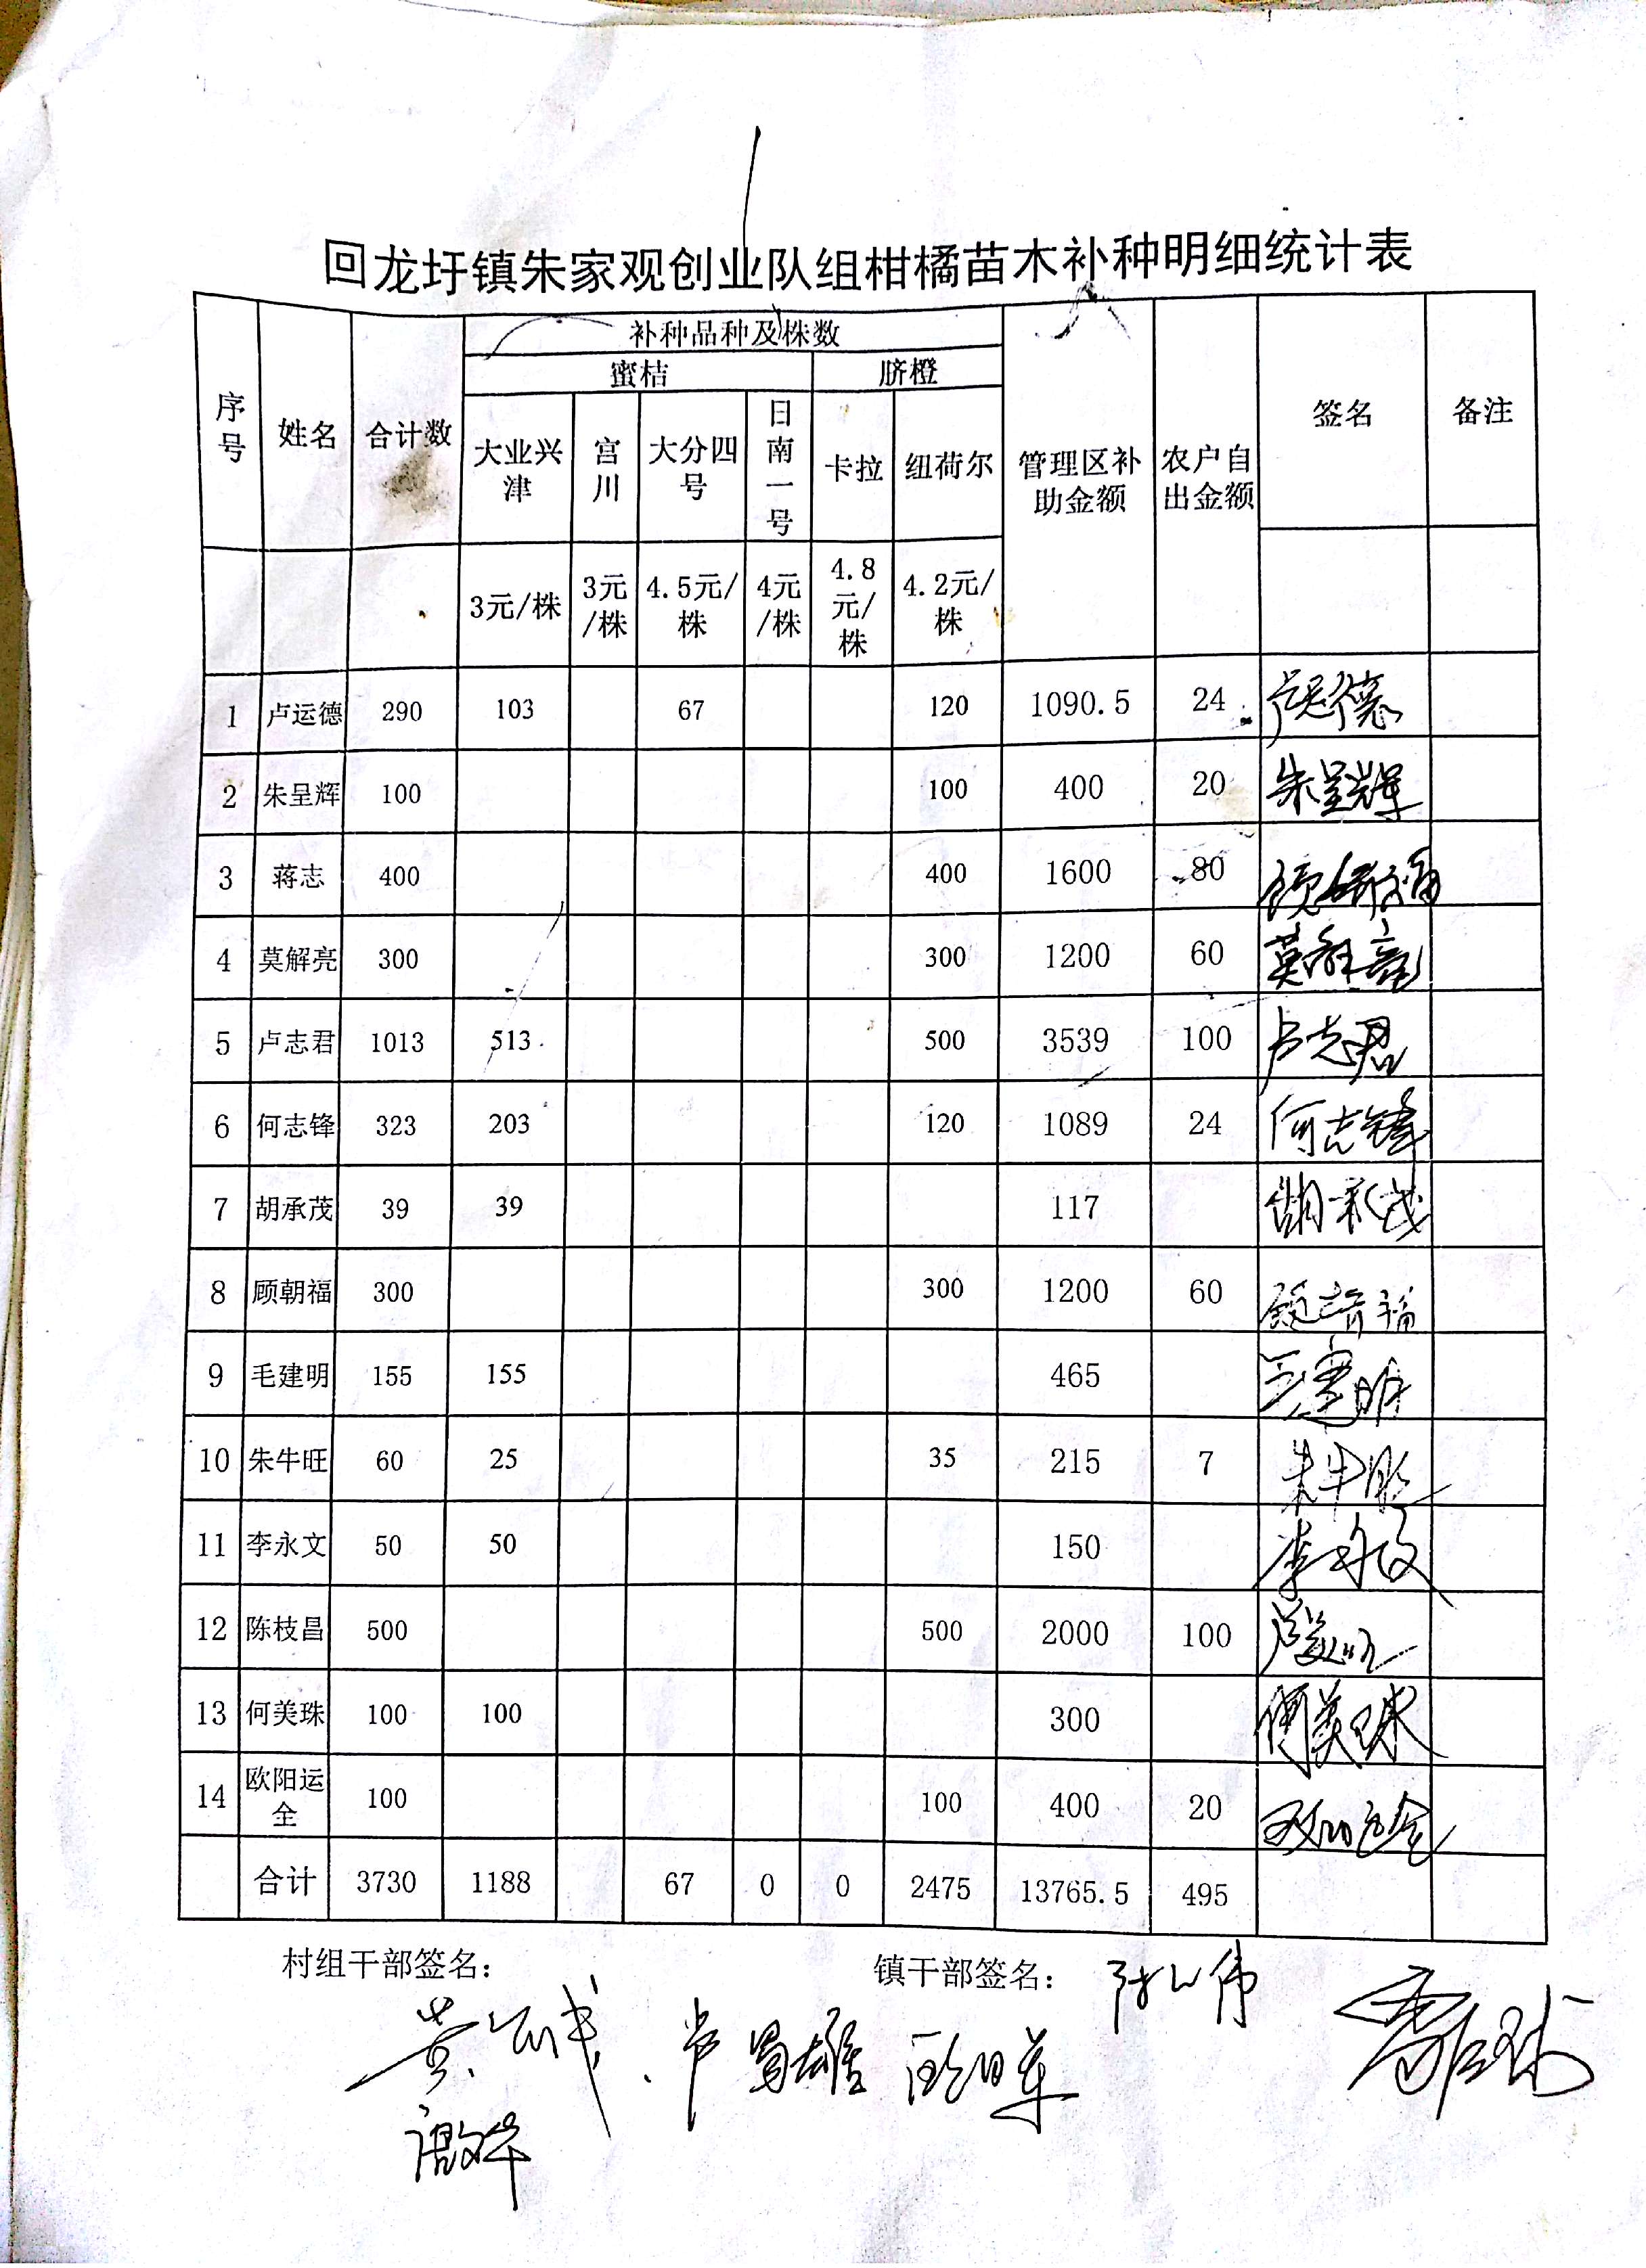 回龙圩镇朱家观创业队组柑橘苗木补种明细统计表
序号 姓名 合计数 补种品种及株数 管理区补助金额 农户自出金额 签名 备注
蜜桔 脐橙
大业兴津 宫川 大分四号 日南一号 卡拉 纽荷尔
3元/株 3元/株 4.5元/株 4元/株 4.8元/株 4.2元/株
1 卢运德 290 103 67 120 1090.5 24 卢运德
2 朱呈辉 100 100 400 20 朱呈辉
3 蒋志 400 400 1600 80
4 莫解亮 300 300 1200 60 莫解亮
5 卢志君 1013 513 500 3539 100 卢志君
6 何志锋 323 203 120 1089 24 何志锋
7 胡承茂 39 39 117 胡承茂
8 顾朝福 300 300 1200 60 顾朝福
9 毛建明 155 155 465 毛建明
10 朱牛旺 60 25 35 215 7 朱牛旺
11 李永文 50 50 150 李永文
12 陈枝昌 500 500 2000 100
13 何美珠 100 100 300 何美珠
14 欧阳运全 100 100 400 20
合计 3730 1188 67 0 0 2475 13765.5 495
村组干部签名： 镇干部签名：